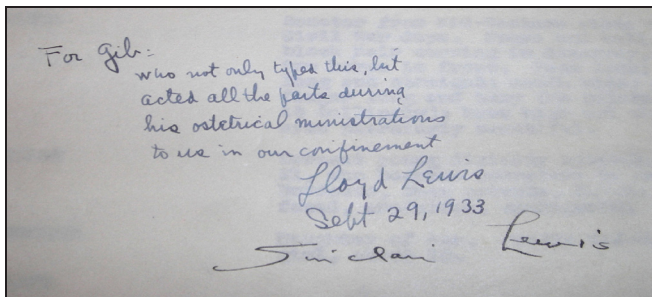 For Gib:
who not only typed this, but
acted all the parts during
his ostetrical ministrations
to us in our confinement
Lloyd Lewis
Sept 29, 1933
Sinclair Lewis